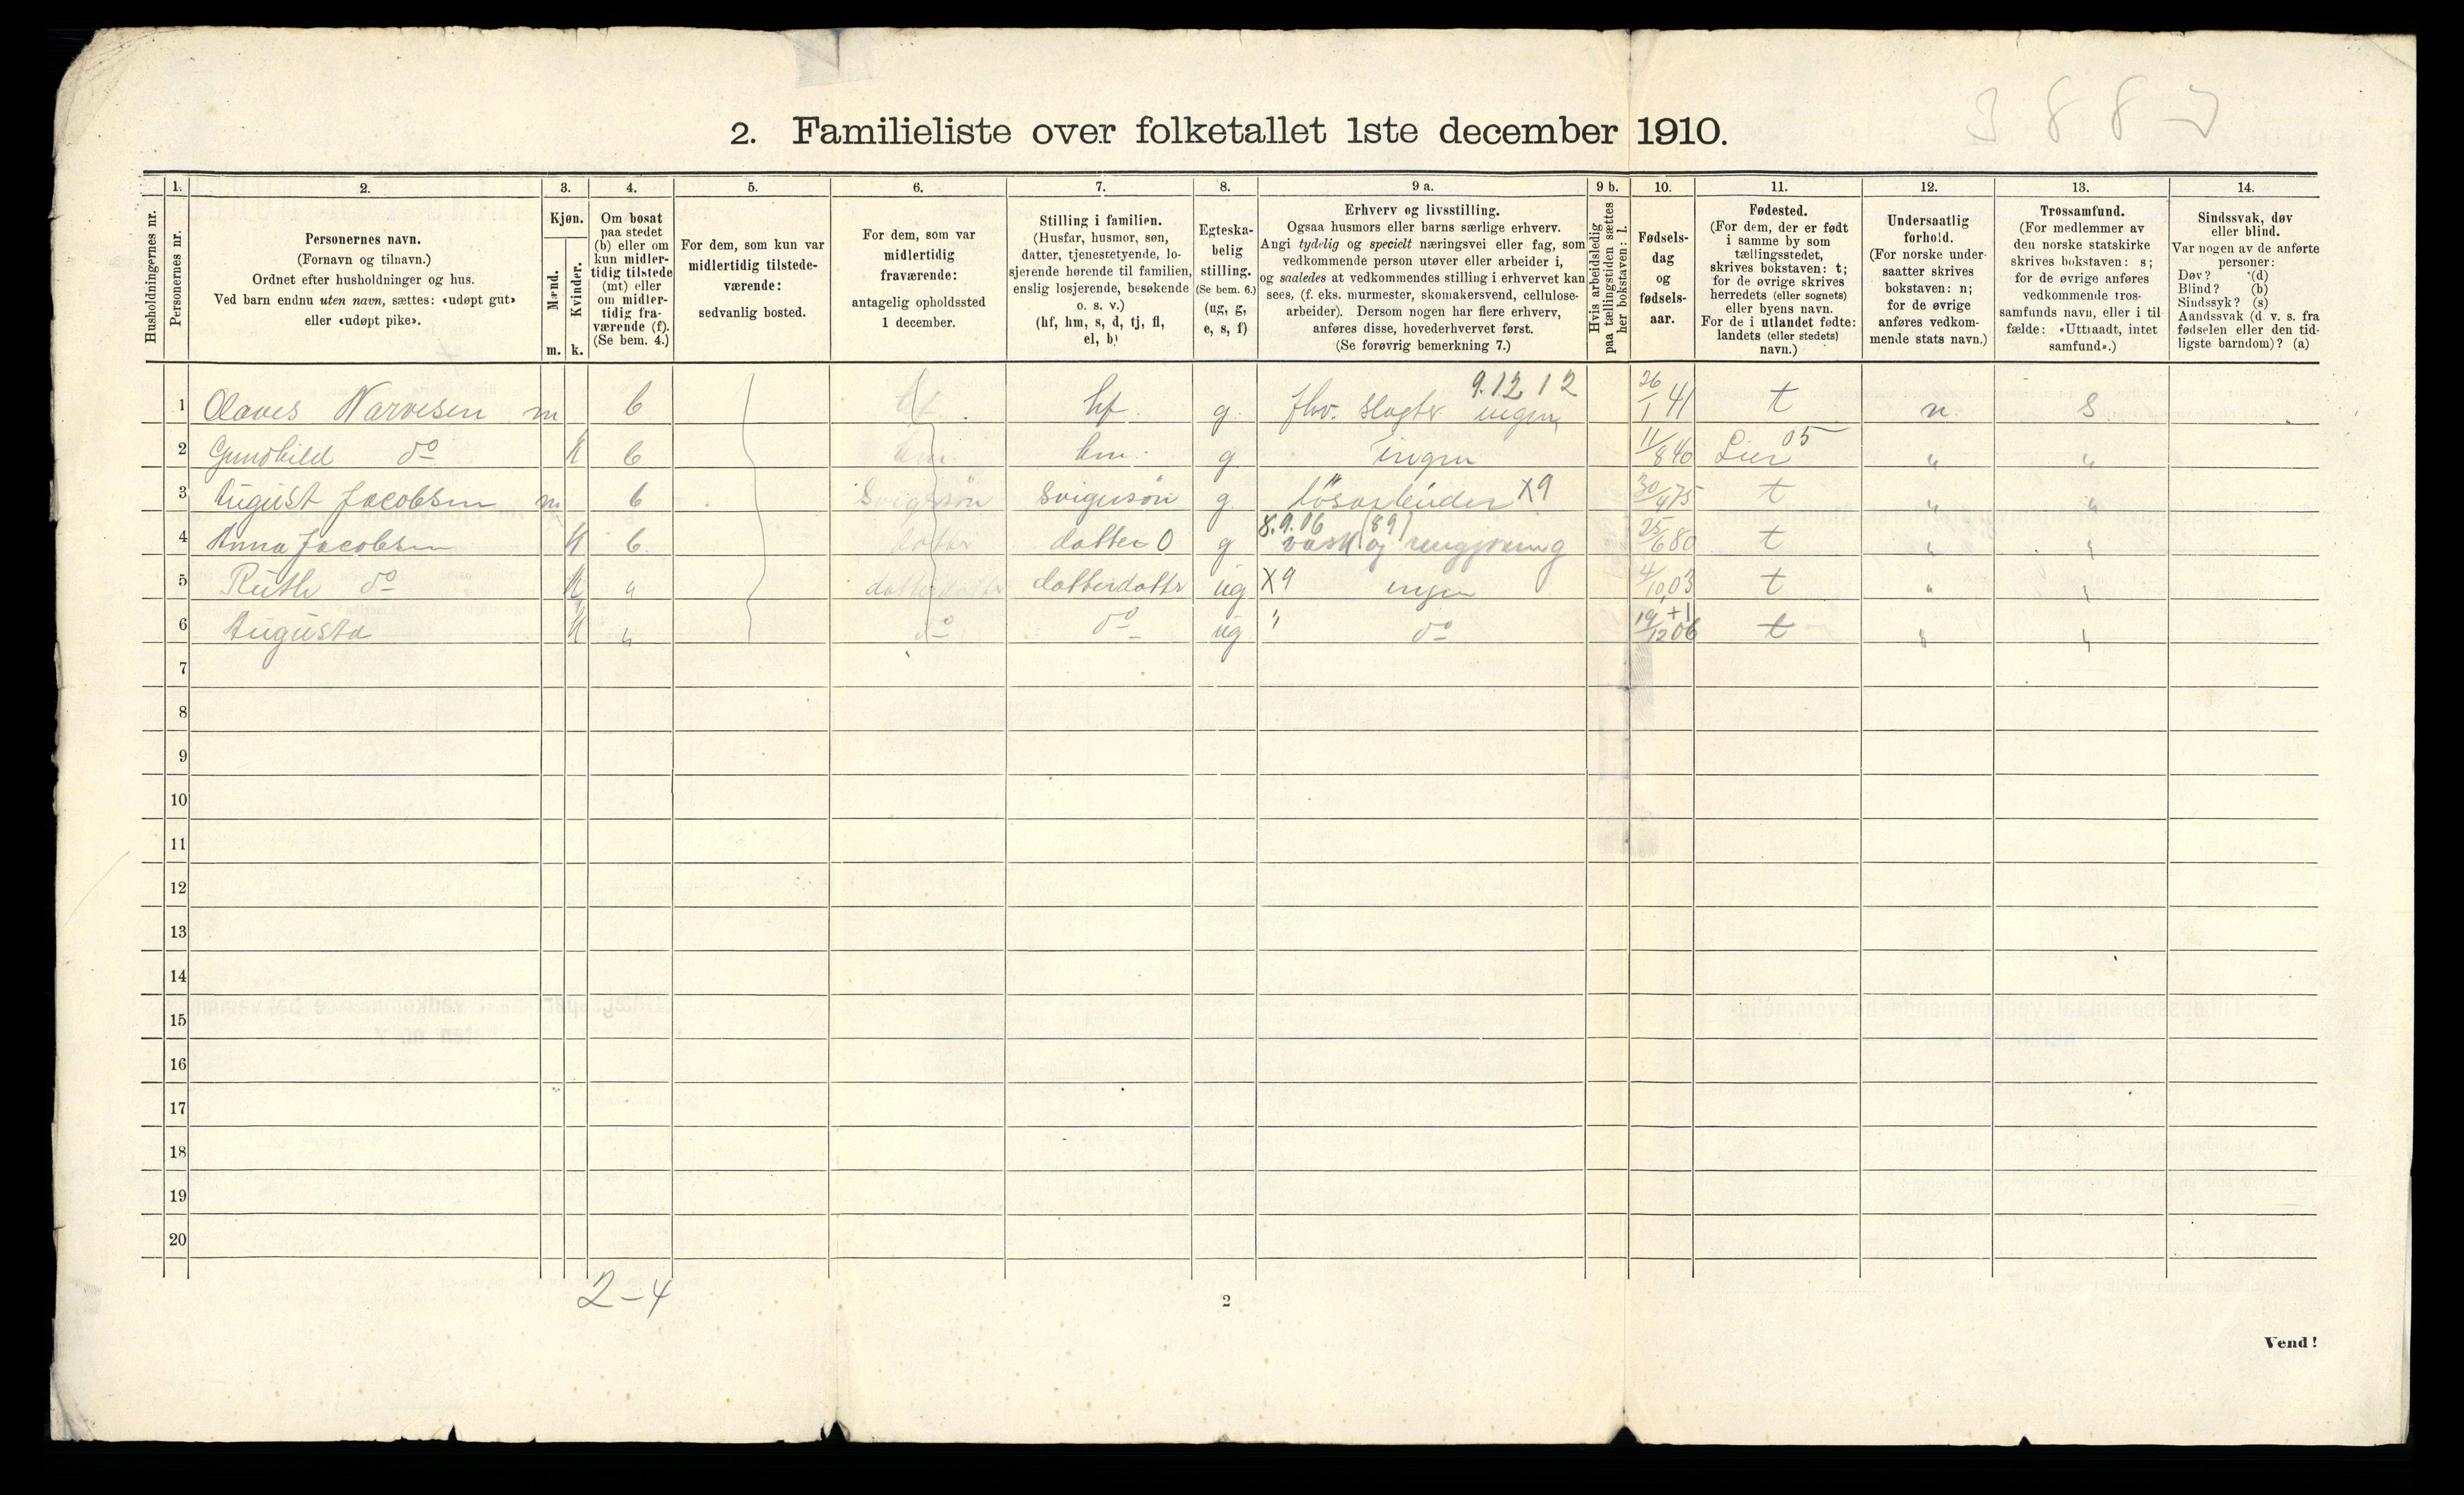 3 8 8 2
2. Familieliste over folketallet 1ste december 1910.
Husholdningernes nr.
1. Personernes nr.
2.
Personernes navn.
(Fornavn og tilnavn.)
Ordnet efter husholdninger og hus.
Ved barn endnu uten navn, sættes: «udøpt gut»
eller «udøpt pike».
3.
Kjøn.
Mænd. m.
Kvinder. k.
4.
Om bosat
paa stedet
(b) eller om
kun midler-
tidig tilstede
(mt) eller
om midler-
tidig fra-
værende (f).
(Se bem. 4.)
5.
For dem, som kun var
midlertidig tilstede-
værende:
sedvanlig bosted.
6.
For dem, som var
midlertidig
fraværende:
antagelig opholdssted
1 december.
7.
Stilling i familien.
(Husfar, husmor, søn,
datter, tjenestetyende, lo-
sjerende hørende til familien,
enslig losjerende, besøkende
o. s. v.)
(hf, hm, s, d, tj, fl,
el, b)
8.
Egteska-
belig
stilling.
(Se bem. 6.)
(ug, g,
e, s, f)
9 a.
Erhverv og livsstilling.
Ogsaa husmors eller barns særlige erhverv.
Angi tydelig og specielt næringsvei eller fag, som
vedkommende person utøver eller arbeider i,
og saaledes at vedkommendes stilling i erhvervet kan
sees, (f. eks. murmester, skomakersvend, cellulose-
arbeider). Dersom nogen har flere erhverv,
anføres disse, hovederhvervet først.
(Se forøvrig bemerkning 7.)
9 b.
Hvis arbeidsledig
paa tællingstiden sættes
her bokstaven: l.
10.
Fødsels-
dag
og
fødsels-
aar.
11.
Fødested.
(For dem, der er født
i samme by som
tællingsstedet,
skrives bokstaven: t;
for de øvrige skrives
herredets (eller sognets)
eller byens navn.
For de i utlandet fødte:
landets (eller stedets)
navn.)
12.
Undersaatlig
forhold.
(For norske under-
saatter skrives
bokstaven: n;
for de øvrige
anføres vedkom-
mende stats navn.)
13.
Trossamfund.
(For medlemmer av
den norske statskirke
skrives bokstaven: s;
for de øvrige anføres
vedkommende tros-
samfunds navn, eller i til-
fælde: «Uttraadt, intet
samfund».)
14.
Sindssvak, døv
eller blind.
Var nogen av de anførte
personer:
Døv? (d)
Blind? (b)
Sindssyk? (s)
Aandssvak (d. v. s. fra
fødselen eller den tid-
ligste barndom)? (a)
9.12 12
1 Olaves Narvesen m b hf g fhv. slagter ingen 26/1 41 t n s
2 Gunohild do k b hm hm g Ingen 11/8 40 Lier 05 " "
3 August Jacobsen m b Svigersön Svigersön g lösarbeider X9 30/4 75 t " "
8.9.06 (89)
4 Anna Jacobsen k b datter datter 0 g vask og rengjøring 25/6 80 t " "
5 Ruth do k " datterdatter datterdatter ug X9 ingen 4/10 03 t " "
6 Augusta k " do do ug " do 19/12 06 +1 t " "
7
8
9
10
11
12
13
14
15
16
17
18
19
20
2-4
2
Vend!